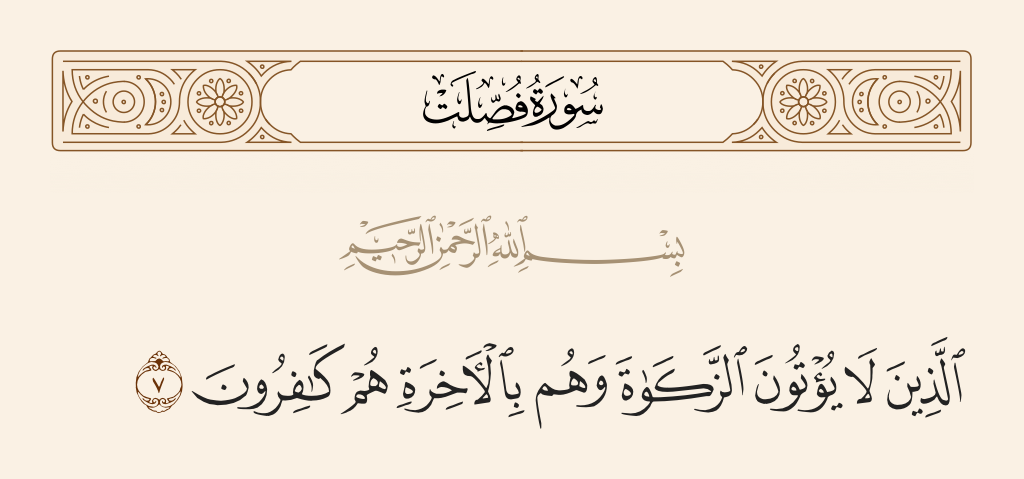 سُورَةُ فُصِّلَتْ
بِسْمِ ٱللَّهِ ٱلرَّحْمَٰنِ ٱلرَّحِيمِ
ٱلَّذِينَ لَا يُؤْتُونَ ٱلزَّكَوٰةَ وَهُم بِٱلْـَٔاخِرَةِ هُمْ كَـٰفِرُونَ ٧